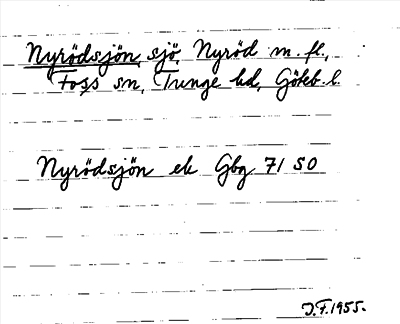 Nyrödsjön, sjö, Nyröd m. fl.,
Foss sn, Tunge hd, Göteb. l.
Nyrödsjön ek Gbg 71 50
J.F.1955.